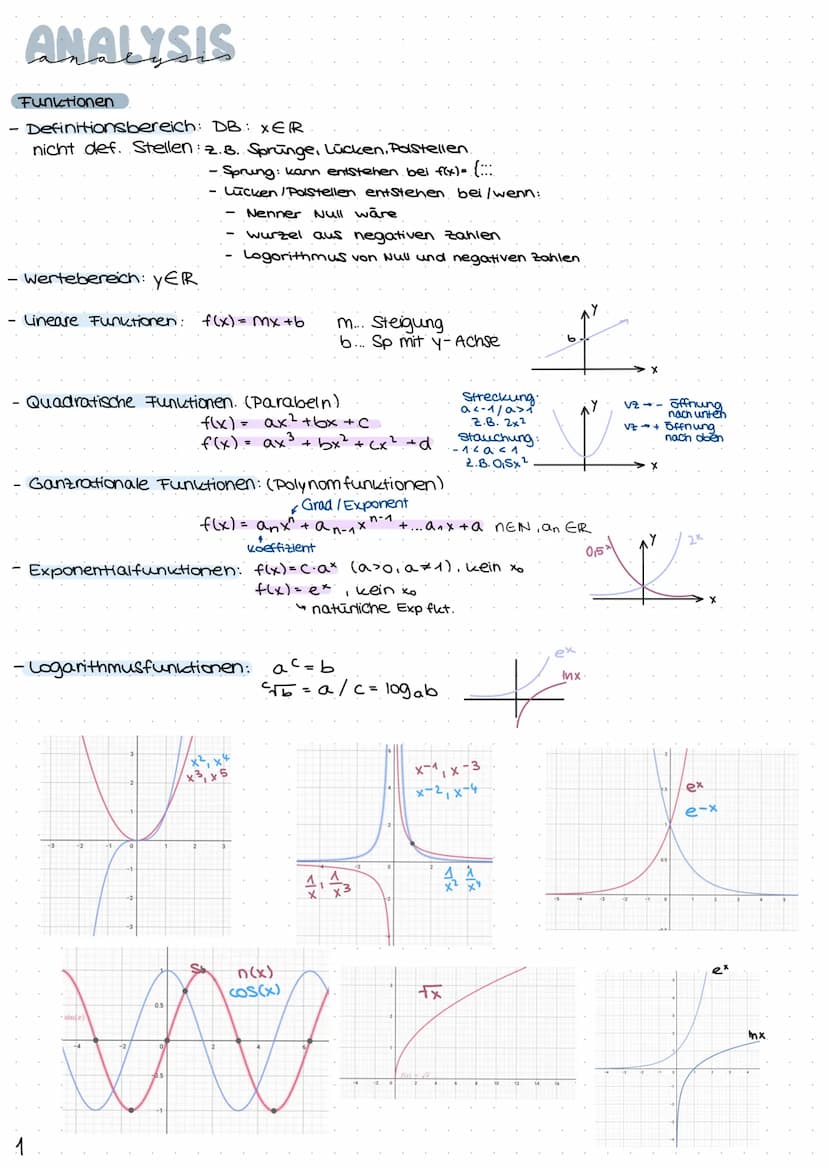 ANALYSIS
analysis
Funktionen
- Definitionsbereich: DB: x∈ℝ
nicht def. Stellen: z.B. Sprünge, Lücken, Polstellen
- Sprung: kann entstehen bei f(x)= {:::
- Lücken/Polstellen entstehen bei/wenn:
- Nenner Null wäre
- Wurzel aus negativen Zahlen
- Logorithmus von Null und negativen Zahlen
- Wertebereich: y∈ℝ
- Lineare Funktionen: f(x)=mx+b m... Steigung
b... Sp mit y-Achse
y
b
x
- Quadratische Funktionen. (Parabeln)
f(x) = ax²+bx+c
f(x) = ax³ + bx² + cx² + d
Streckung:
a<-1/a>1
z.B. 2x²
Stauchung:
-1<a<1
z.B. 0,5x²
y
x
VZ → - Öffnung
nach unten
VZ → + Öffnung
nach oben
- Ganzrationale Funktionen: (Polynomfunktionen)
Grad/Exponent
f(x) = aₙxⁿ + aₙ₋₁xⁿ⁻¹ + ...a₁x+a n∈ℕ, aₙ∈ℝ
Koeffizient
- Exponentialfunktionen: f(x)=c·aˣ (a>0, a≠1), kein x₀
f(x)=eˣ, kein x₀
↳ natürliche Exp fkt.
0,5ˣ
y
2ˣ
x
- Logarithmusfunktionen: aᶜ=b
ᶜ√b = a / c = logₐb
eˣ
lnx
x², x⁴
x³, x⁵
x⁻¹, x⁻³
x⁻², x⁻⁴
1/x, 1/x³
1/x² 1/x⁴
eˣ
e⁻ˣ
S
n(x)
cos(x)
√x
eˣ
lnx
1